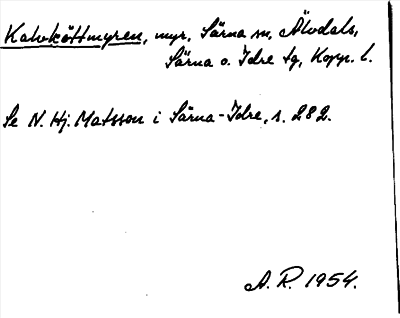 Kalvköttmyren, myr, Särna sn, Älvdals,
Särna o. Idre tg, Kopp. l.
Se N. Hj. Matsson i Särna-Idre, s. 282.
A. R. 1954.